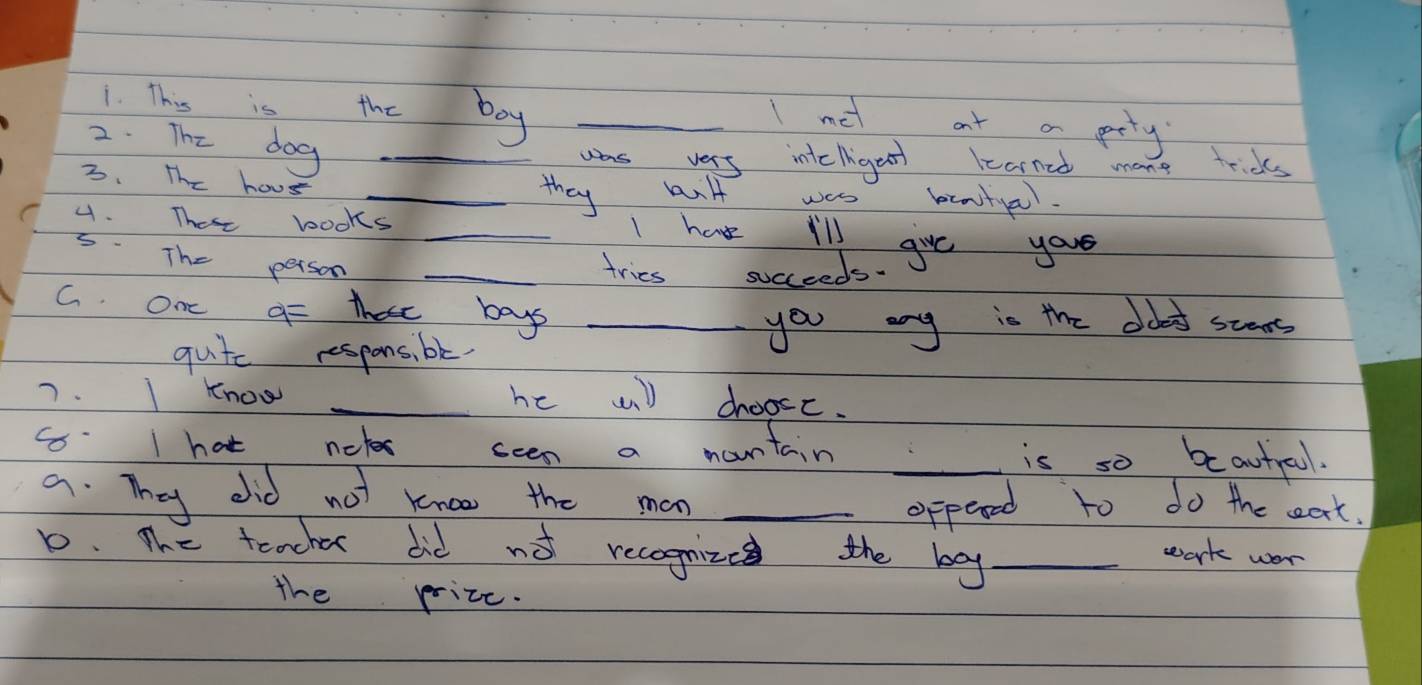 1. This is the boy ______ I met at a party.
2. The dog ______ was very intelligent learned many tricks
3. The house ______ they built was beautiful.
4. These books ______ I have I'll give you
5. The person ______ tries succeeds.
6. One of these boys ______ you say is the oldest seems
quite responsible.
7. I know ______ he will choose.
8. I have never seen a mountain ______ is so beautiful.
9. They did not know the man ______ offered to do the work.
10. The teacher did not recognized the boy ______ work won
the prize.